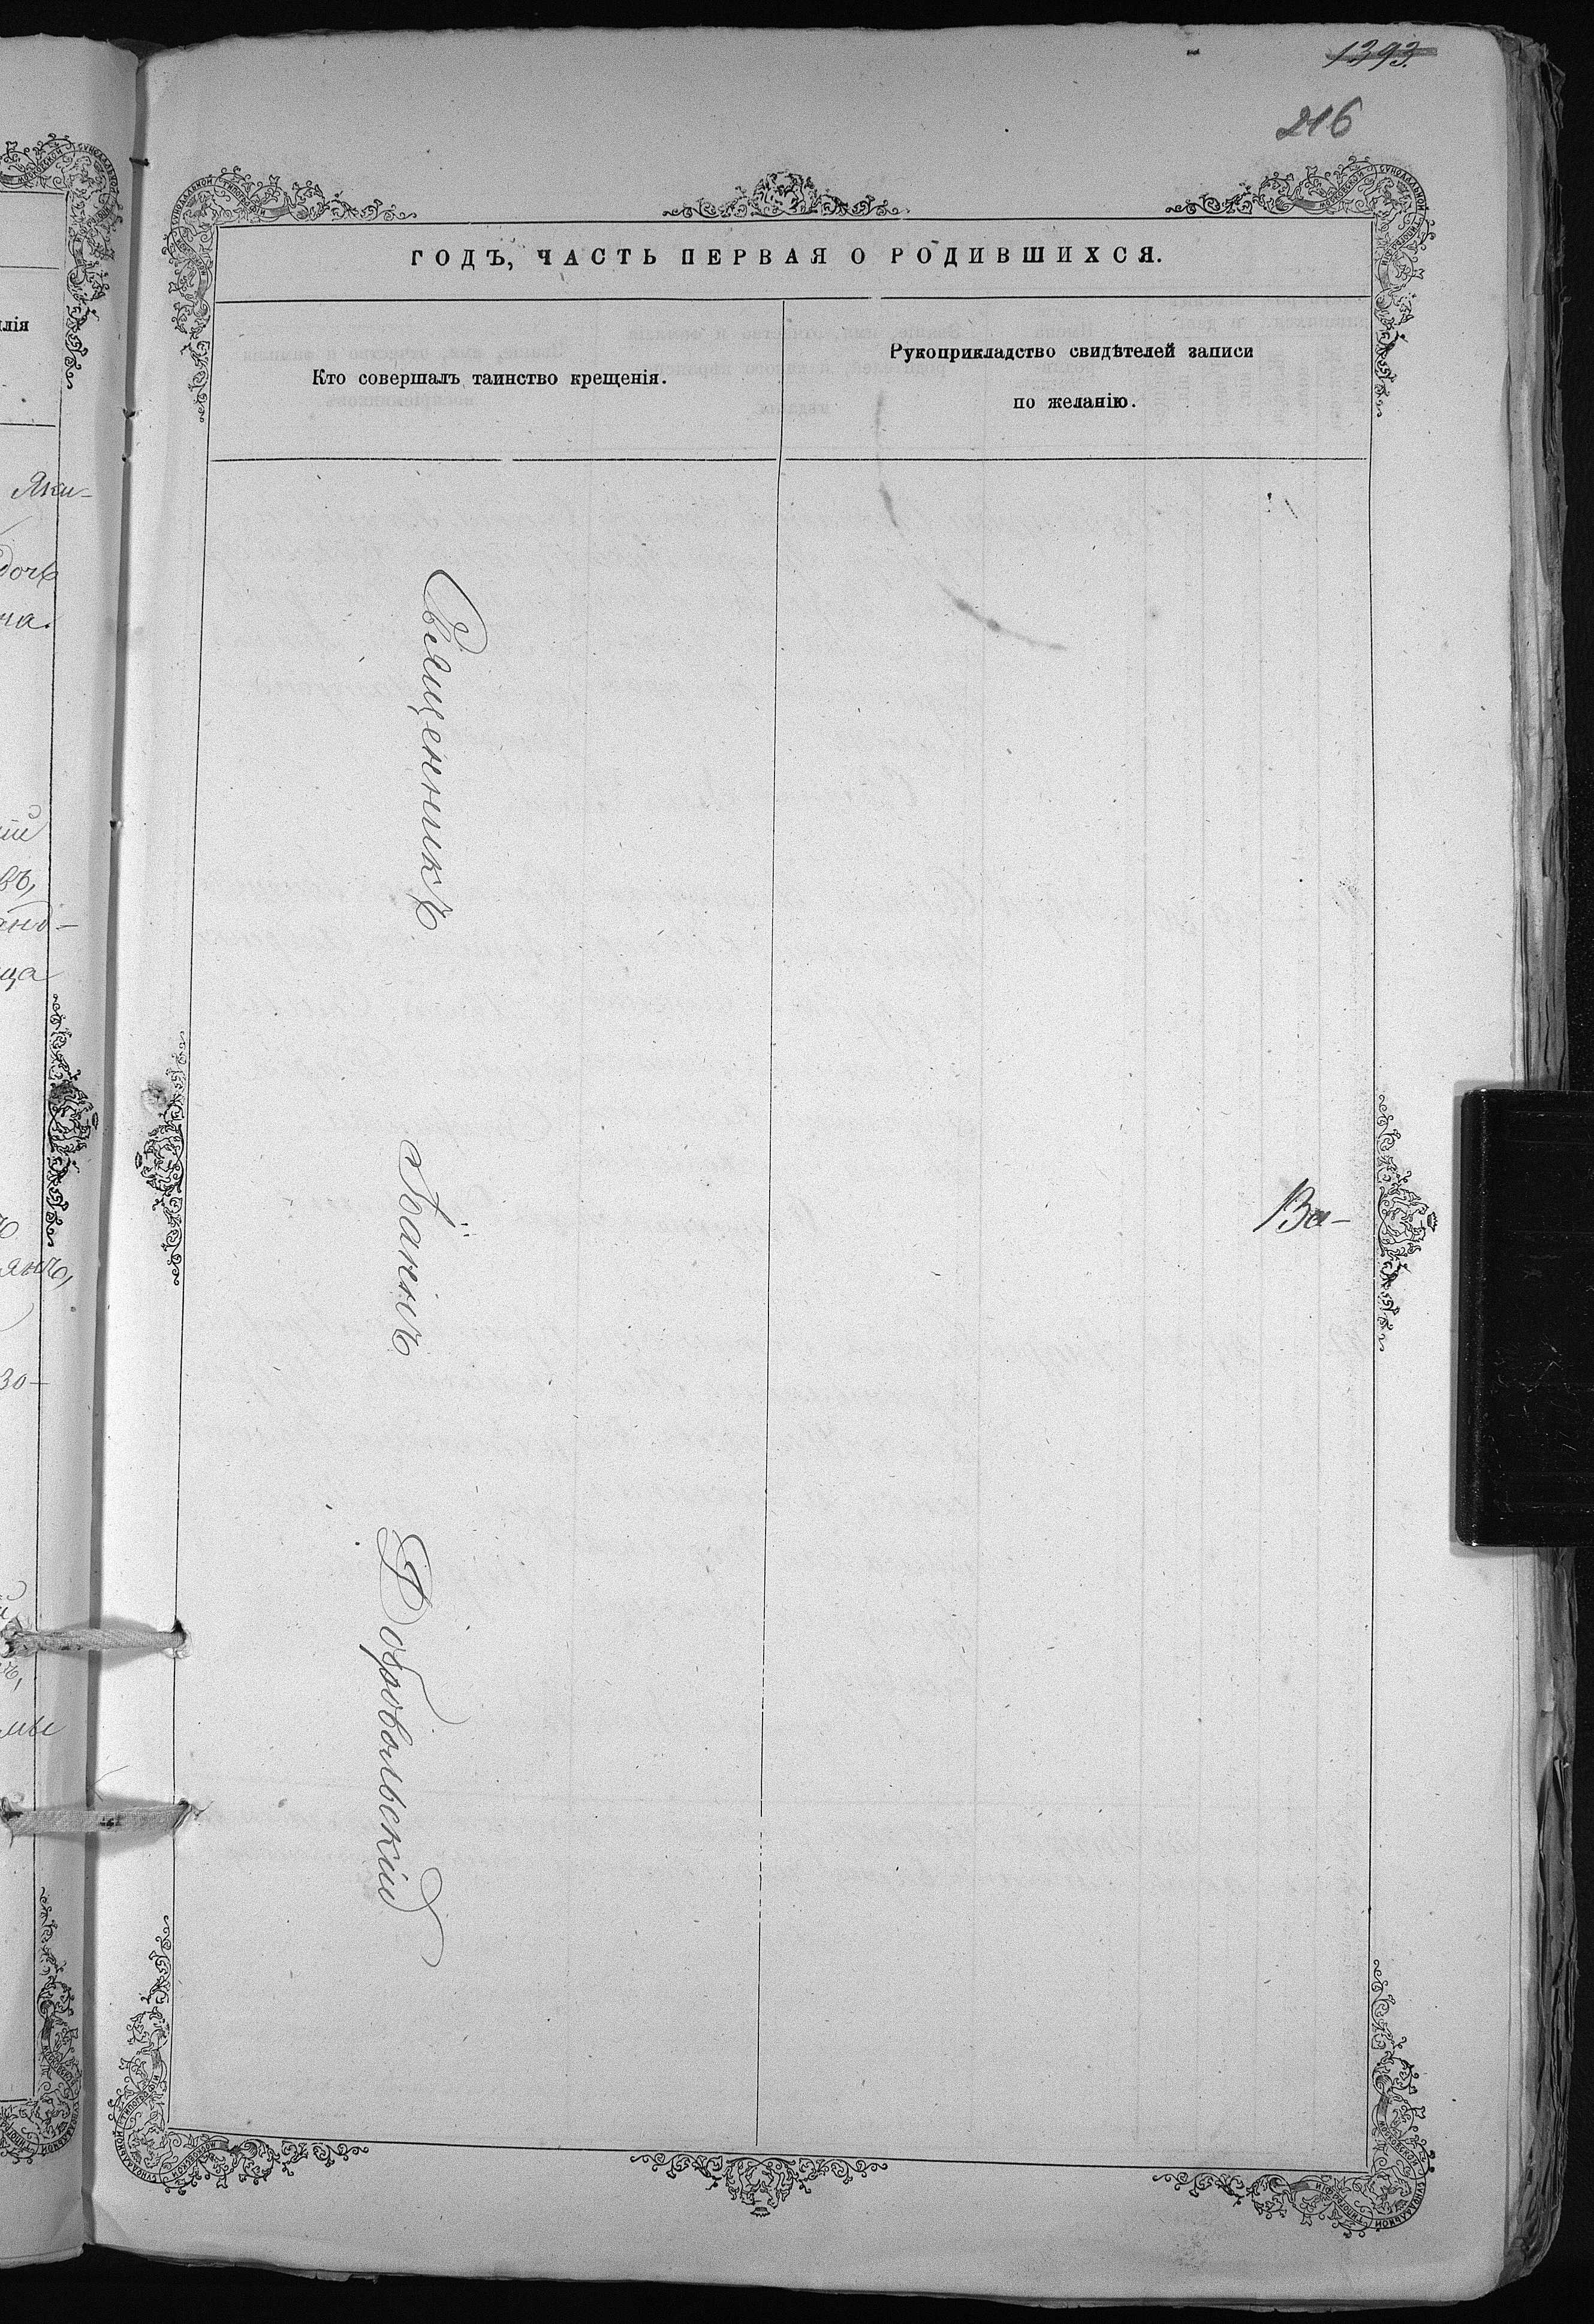 1393.
216
ГОДЪ, ЧАСТЬ ПЕРВАЯ О РОДИВШИХСЯ.
Кто совершалъ таинство крещенія.
Рукоприкладство свидѣтелей записи
по желанію.
Священникъ
Іоаннъ
Добровольскій
Ва-
лія
Яки-
дочь
на.
въ,
анд-
ца
янъ,
зо-